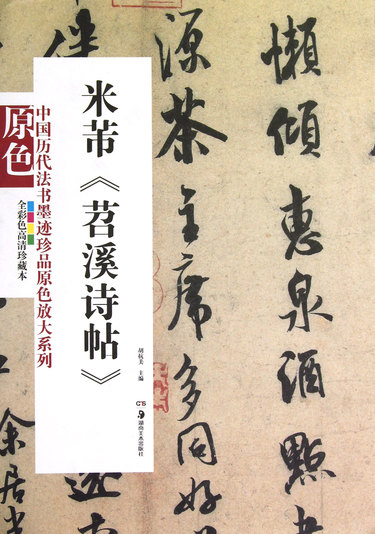 米芾《苕溪诗帖》
原色
中国历代法书墨迹珍品原色放大系列
全彩色高清珍藏本
胡抗美 主编
湖南美术出版社
懶傾惠泉酒點
源茶主席多同好
余居半